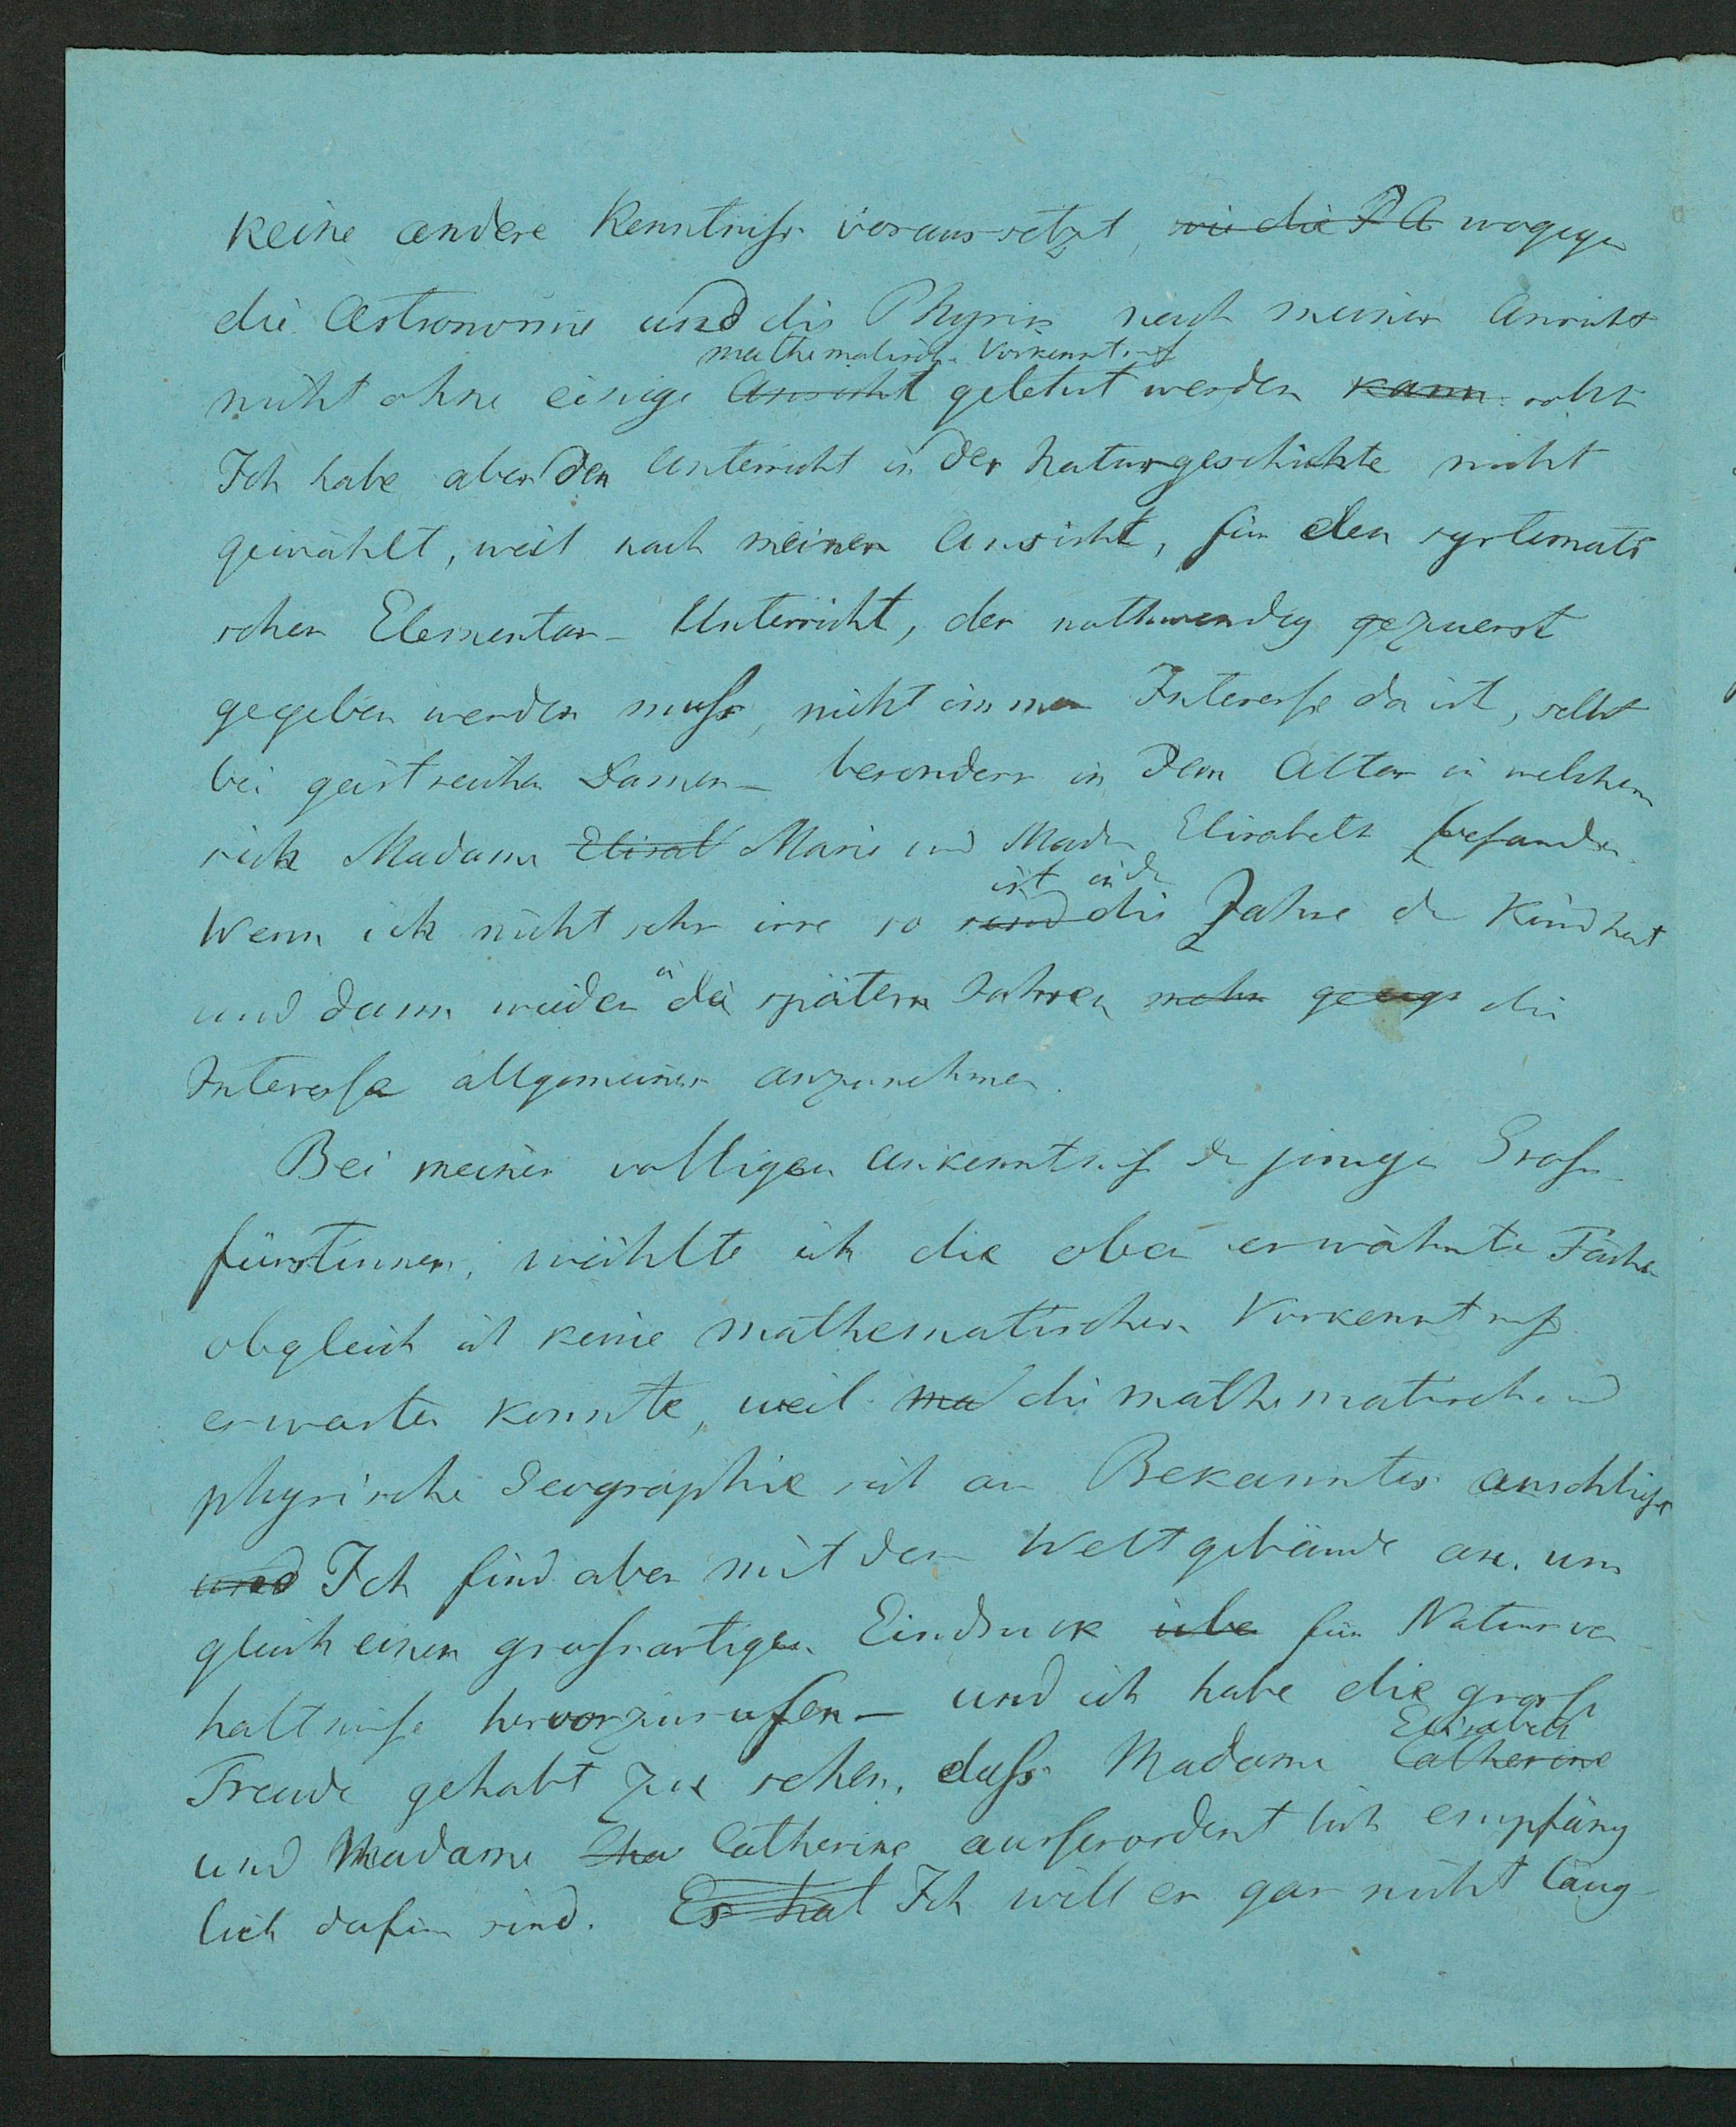 keine andere Kenntniss voraus setzt, wie die P A wogegen
die Astronomie und die Physik nach meiner Ansicht
mathematische Vorkenntniss
nicht ohne einige Ansicht gelehrt werden kann sollte
Ich habe aber den Unterricht in der Naturgeschichte nicht
gewählt, weil nach meiner Ansicht, für den systemati
schen Elementar-Unterricht, der nothwendig ge zuerst
gegeben werden muss, nicht immer Interesse da ist, selbst
bei geistreichen Damen - besonders in dem Alter in welchem
sich Madame Elisab Marie und Madm Elisabeth befanden.
ist in d
Wenn ich nicht sehr irre so sind die Jahre der Kindheit
in
und dann wieder die spätern Jahren mehr die
Interesse allgemeiner anzunehmen.
Bei meiner volligen Unkenntniss der jungen Gross
fürstinnen, wählte ich die oben erwähnte Fächer
obgleich ich keine mathematischen Vorkenntniss
erwarten konnte, weil ma die mathematische und
physische Geographie sich an Bekanntes anschliesst
und Ich find aber mit dem Weltgebäude an, um
gleich einen grossartigen Eindruck übe für Naturver
haltnisse hervorzurufen - und ich habe die grosse
Elisabeth
Freude gehabt zu sehen, dass Madame Catherine
und Madame Catherine ausserordentlich empfäng
lich dafür sind. Es hat Ich will er gar nicht läug-